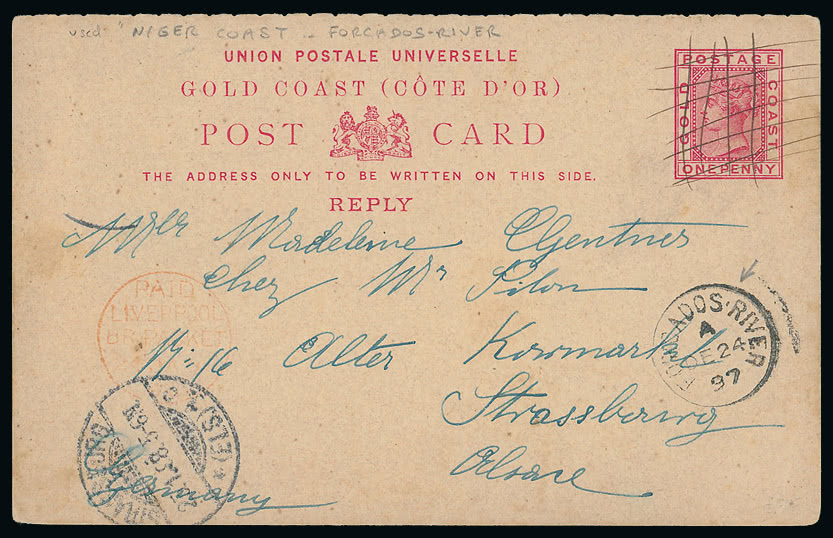 used "NIGER COAST - FORCADOS-RIVER
UNION POSTALE UNIVERSELLE
GOLD COAST (CÔTE D'OR)
POST CARD
THE ADDRESS ONLY TO BE WRITTEN ON THIS SIDE.
REPLY
POSTAGE
GOLD
COAST
ONE PENNY
Madeleine Gentner
chez Mr Filon
PAID
LIVERPOOL
BR. PACKET
No 16 Alter Kornmarkt
FORCADOS·RIVER
A
DE 24
97
Strassbourg
Alsace
Germany
STRASSBURG
(ELS)